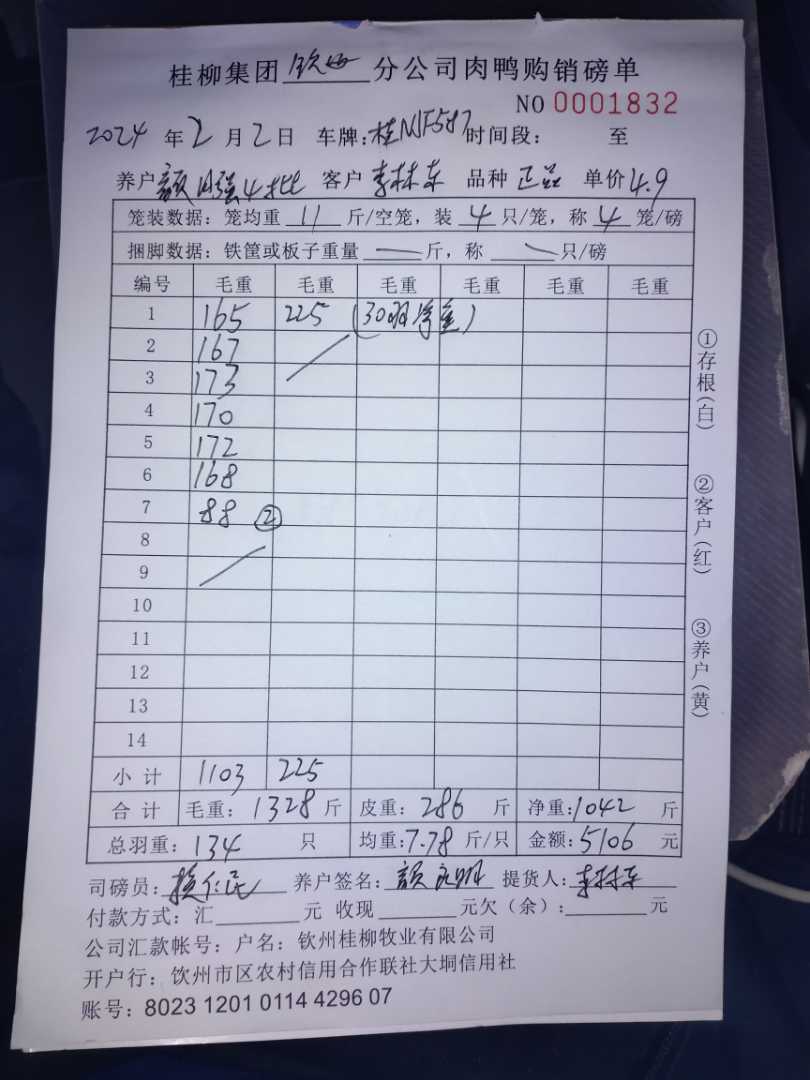 桂柳集团 钦州 分公司肉鸭购销磅单
NO 0001832
2024 年 2 月 2 日 车牌: 时间段: 至
养户 4批 客户 李林东 品种 正品 单价 4.9
笼装数据: 笼均重 11 斤/空笼, 装 4 只/笼, 称 4 笼/磅
捆脚数据: 铁筐或板子重量 — 斤, 称 — 只/磅
编号 毛重 毛重 毛重 毛重 毛重 毛重
1 165 225 (30羽净重)
2 167
3 173
4 170
5 172
6 168
7 88 ②
8
9
10
11
12
13
14
小计 1103 225
合计 毛重: 1328 斤 皮重: 286 斤 净重: 1042 斤
总羽重: 134 只 均重: 7.78 斤/只 金额: 5106 元
司磅员: 养户签名: 提货人: 李林东
付款方式: 汇 元 收现 元欠(余): 元
公司汇款帐号: 户名: 钦州桂柳牧业有限公司
开户行: 钦州市区农村信用合作联社大垌信用社
账号: 8023 1201 0114 4296 07
①存根(白)
②客户(红)
③养户(黄)